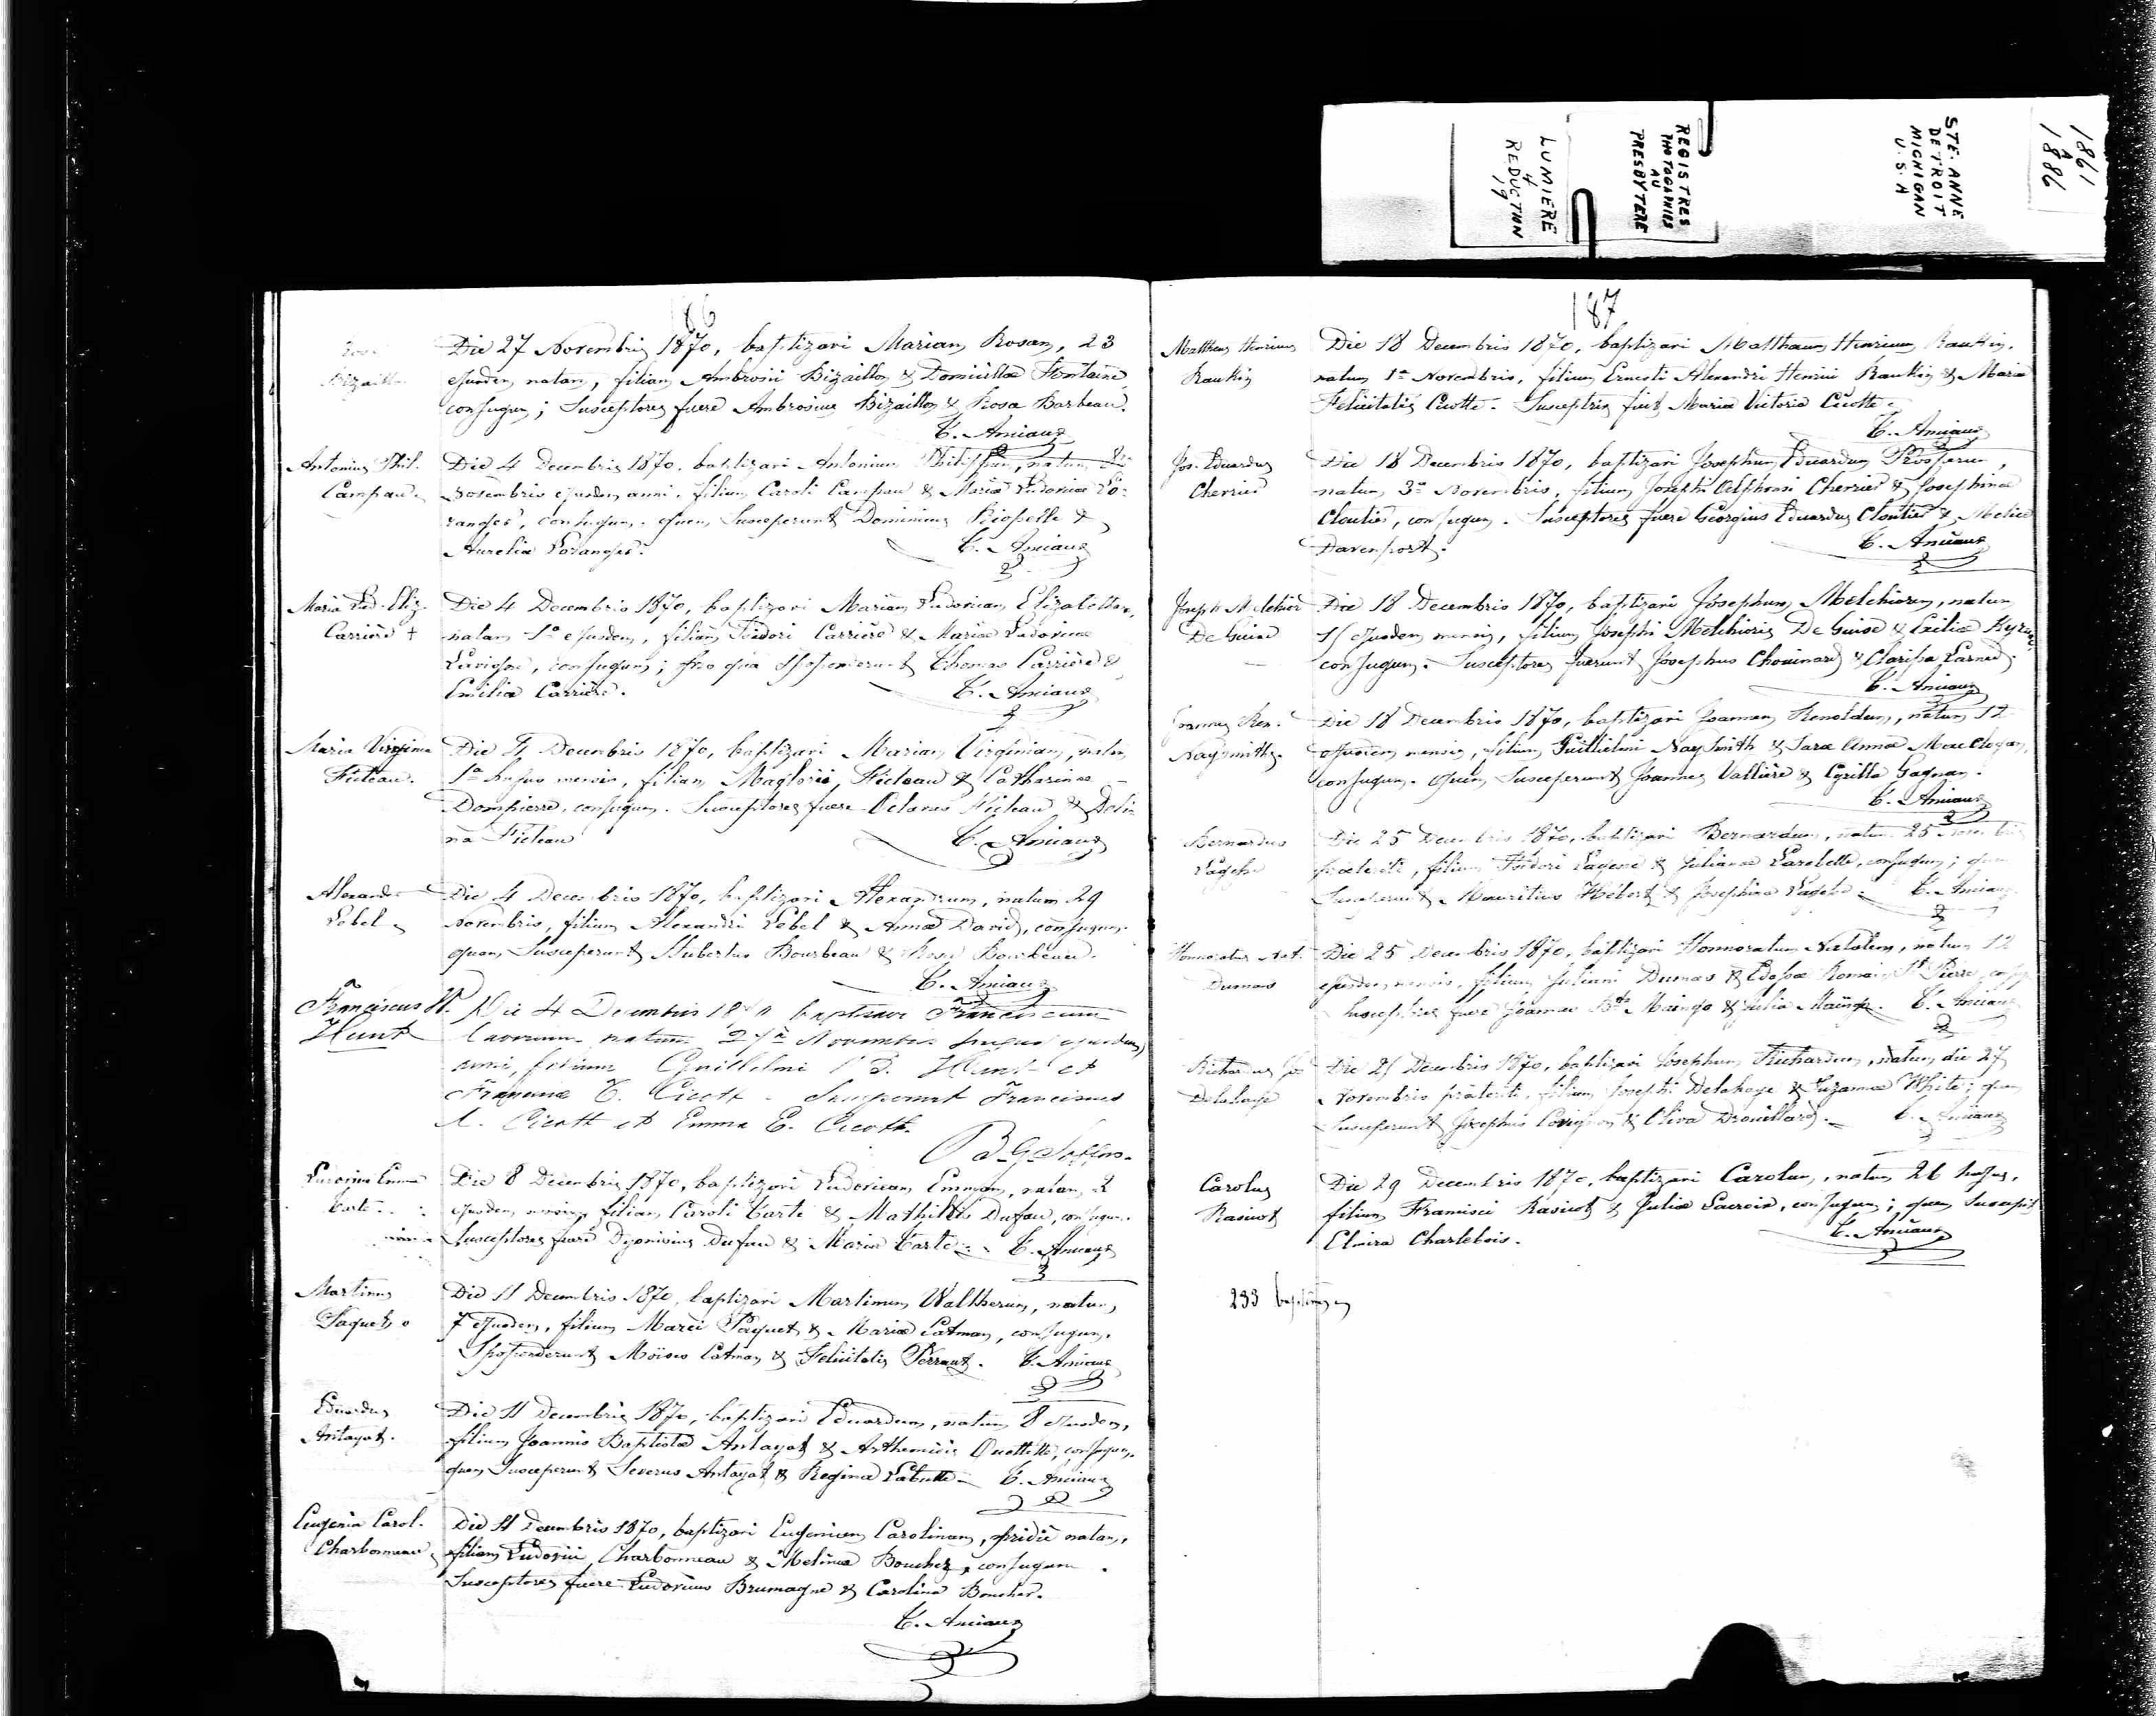 1861
A
1886
STE. ANNE
DETROIT
MICHIGAN
U.S.A
REGISTRES
PHOTOGRAPHIES
AU
PRESBYTERE
LUMIERE
4
REDUCTION
19
186
Bizaillon
Die 27 Novembris 1870, baptizavi Mariam Rosam, 23
ejusdem natam, filiam Ambrosii Bizaillon & Domicillae Fontaine
conjugum; Susceptores fuere Ambrosius Bizaillon & Rosa Barbeau.
T. Amiaux
Antonius Phil.
Campau.
Die 4 Decembris 1870, baptizavi Antonium Philippum, natum
Novembris ejusdem anni, filium Caroli Campau & Mariae Ludovicae Lo-
ranger, conjugum. quem Susceperunt Dominicus Riopelle &
Aurelia Loranger.
T. Amiaux
Maria Lud. Eliz.
Carrière +
Die 4 Decembris 1870, baptizavi Mariam Ludovicam Elizabetham,
natam 1a ejusdem, filiam Isidori Carrière & Mariae Ludovicae
conjugum; pro qua Spoponderunt Thomas Carrière &
Emilia Carrière.
T. Amiaux
Maria Virginia
Ficteau.
Die 4 Decembris 1870, baptizavi Mariam Virginiam, natam
1a hujus mensis, filiam Maglorii Ficteau & Catharinae
Dompierre, conjugum. Susceptores fuere Octavus Ficteau & Deli-
na Ficteau
T. Amiaux
Alexander
Lebel
Die 4 Decembris 1870, baptizavi Alexandrum, natum 29
Novembris, filium Alexandri Lebel & Annae David, conjugum.
quem Susceperunt Hubertus Bourbeau & Rosa Bourbeau.
T. Amiaux
Franciscus W.
Hunt
Die 4 Decembris 1870 baptizavi Franciscum
natum Novembris hujus ejusdem
anni, filium Guillelmi B. Hunt et
Franciscae C. Cicott - Susceperunt Franciscus
A. Cicott et Emma E. Cicott.
B. G. Soffers.
Ludovica Emma
Tarte
Die 8 Decembris 1870, baptizavi Ludovicam Emmam, natam 2
ejusdem mensis, filiam Caroli Tarte & Mathildis Dufau, conjugum.
Susceptores fuere Dyonisius Dufau & Maria Tarte. T. Amiaux
Martinus
Paquet
Die 11 Decembris 1870, baptizavi Martinum Waltherum, natum
7 ejusdem, filium Marci Paquet & Mariae Catman, conjugum.
Spoponderunt Moises Catman & Felicitatis Perraut. T. Amiaux
Eduardus
Antayat.
Die 11 Decembris 1870, baptizavi Eduardum, natum 8 ejusdem,
filium Joannis Baptistae Antayat & Arthemisis Ouellette, conjugum.
quem Susceperunt Severus Antayat & Regina Labutte. T. Amiaux
Eugenia Carol.
Charbonneau
Die 11 Decembris 1870, baptizavi Eugeniam Carolinam, pridie natam,
filiam Ludovici Charbonneau & Melinae Boucher, conjugum.
Susceptores fuere Ludovicus Brumagne & Carolina Boucher.
T. Amiaux
187
Mattheus Henricus
Rankin
Die 18 Decembris 1870, baptizavi Matthaeum Henricum Rankin,
natum 1a Novembris, filium Ernesti Alexandri Henrici Rankin & Mariae
Felicitatis Cicotte. Susceptrix fuit Maria Victoria Cicotte.
T. Amiaux
Jos. Eduardus
Cherrier
Die 18 Decembris 1870, baptizavi Josephum Eduardum Prosperum,
natum 3a Novembris, filium Josephi Alphonsi Cherrier & Josephinae
Cloutier, conjugum. Susceptores fuere Georgius Eduardus Cloutier & Melina
Davenport.
T. Amiaux
Joseph Melchior
De Guise
Die 18 Decembris 1870, baptizavi Josephum Melchiorem, natum
15 ejusdem mensis, filium Josephi Melchioris De Guise &
conjugum. Susceptores fuerunt Josephus Chouinard & Clarissa Larned.
T. Amiaux
Joannes Ren.
Naysmith.
Die 18 Decembris 1870, baptizavi Joannem Renoldum, natum 12
ejusdem mensis, filium Guillielmi Naysmith & Sarae Annae
conjugum. Quem Susceperunt Joannes Vallière & Cyrilla Gagnan.
T. Amiaux
Bernardus
Lagesse
Die 25 Decembris 1870, baptizavi Bernardum, natum 25 Novembris
praeteriti, filium Isidori Lagesse & Julianae Larabelle, conjugum; quem
Susceperunt Mauritius Hébert & Josephina Lagesse. T. Amiaux
Honnoratus Nat.
Dumas
Die 25 Decembris 1870, baptizavi Honnoratum Natalem, natum 12
ejusdem mensis, filium Juliani Dumas & Romain St Pierre, conjugum
Susceptores fuere Joannes Bte Maingo & Julia Maingo. T. Amiaux
Richardus Jos
Delahaye
Die 25 Decembris 1870, baptizavi Josephum Richardum, natum die 27
Novembris praeteriti, filium Josephi Delahaye & Suzannae White; quem
Susceperunt Josephus & Oliva Drouillard. T. Amiaux
Carolus
Rasicot
Die 29 Decembris 1870, baptizavi Carolum, natum 26 hujus,
filium Francisci Rasicot & Juliae Lacroix, conjugum; quem Suscepit
Elmira Charlebois.
T. Amiaux
233 baptêmes